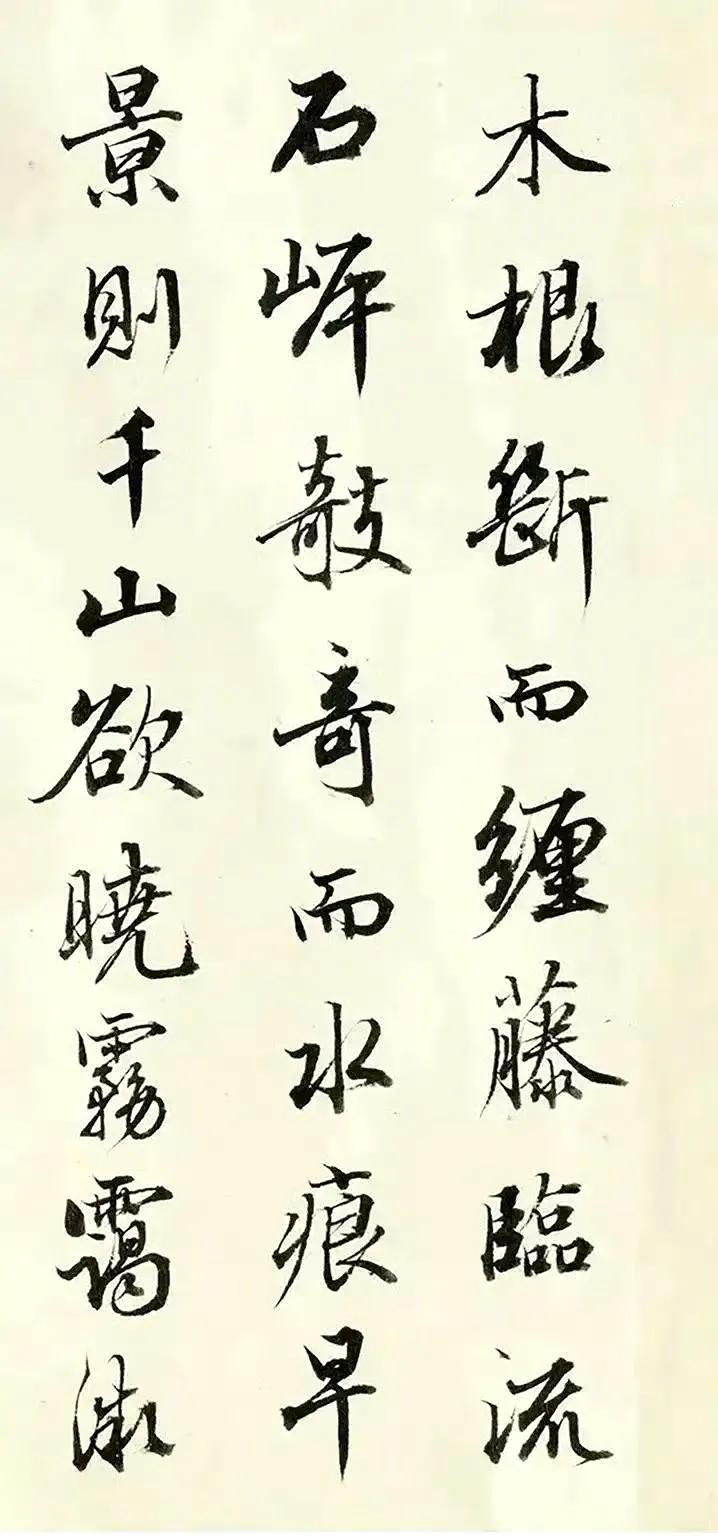 木根斷而纏藤臨流
石岸攲奇而水痕早
景則千山欲曉霧靄微